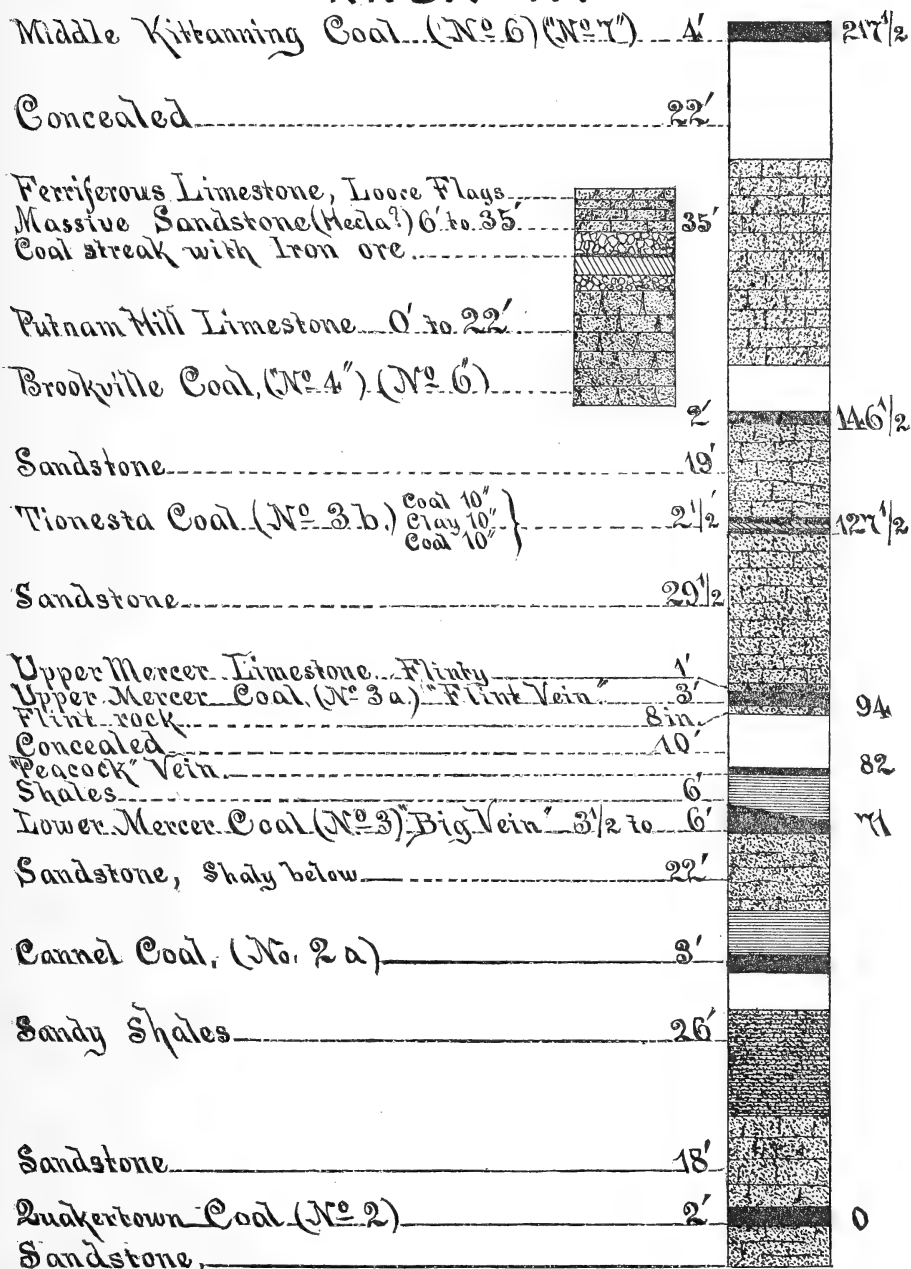 Middle Kittanning Coal (No 6) ("No 7") 4' 217 1/2
Concealed 22'
Ferriferous Limestone, Loose Flags
Massive Sandstone (Hecla?) 6' to 35' 35'
Coal streak with Iron ore
Putnam Hill Limestone 0' to 22'
Brookville Coal, ("No 4") (No 6)
2' 146 1/2
Sandstone 19'
Tionesta Coal (No 3 b.) Coal 10" Clay 10" Coal 10" } 2 1/2' 127 1/2
Sandstone 29 1/2
Upper Mercer Limestone Flinty 1'
Upper Mercer Coal, (No 3 a.) "Flint Vein" 3' 94
Flint rock 8 in.
Concealed 10'
"Peacock" Vein 82
Shales 6'
Lower Mercer Coal (No 3) "Big Vein" 3 1/2 to 6' 71
Sandstone, Shaly below 22'
Cannel Coal, (No. 2 a) 3'
Sandy Shales 26'
Sandstone 18'
Quakertown Coal (No 2) 2' 0
Sandstone,